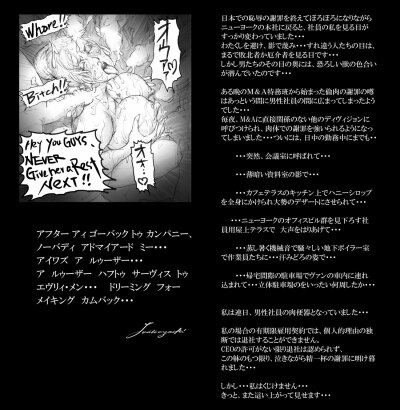 Whore!!
Bitch!!
Hey You GUYS,
NEVER
Give her a Rest
NEXT!!
アフター アィ ゴーバック トゥ カンパニー、
ノーバディ アドマイアード ミー・・・
アイワズ ア ルゥーザー・・・
ア ルゥーザー ハフトゥ サーヴィス トゥ
エヴリィ・メン・・・ ドリーミング フォー
メイキング カムバック・・・
日本での恥辱の謝罪を終えてぼろぼろになりながら
ニューヨークの本社に戻ると、社員の私を見る目が
すっかり変わっていました・・・
わたくしを避け、影で蔑み・・・すれ違う人たちの目は、
まるで敗北者か厄介者を見る目です・・・
しかし男たちのその目の奥には、恐ろしい欲の色合い
が潜んでいたのです・・・
ある晩のM＆A特務班から始まった偸肉の謝罪の噂
はあっという間に男性社員の間に広まってしまったよう
でした・・・
毎夜、M&Aに直接関係のない他のディヴィジョンに
呼びつけられ、肉体での謝罪を強いられるようになって
しまいました・・・ついには、日中の勤務時にまでも・・
・・・突然、会議室に呼ばれて・・・
・・・薄暗い資料室の影で・・・
・・・カフェテラスのキッチン上でハニーシロップ
を全身にかけられ大勢のデザートにされて・・・
・・・ニューヨークのオフィスビル群を見下ろす社
員用屋上テラスで 大声をはりあげて・・・
・・・蒸し暑く機械音で騒々しい地下ボイラー室
で作業員たちに・・・汗みどろの姿で・・・
・・・帰宅間際の駐車場でヴァンの車内に連れ
込まれて・・・立体駐車場のをいったい何周したか・・・
私は連日、男性社員の肉便器となっていました・・・
私の場合の有期限雇用契約では、個人的理由の独
断では退社することができません・・・
CEOの許可がない限り退社は認められず、
この躰のもつ限り、泣きながら精一杯の謝罪に明け暮
れました・・・
しかし・・・私はくじけません・・・
きっと、また這い上がって見せます・・・